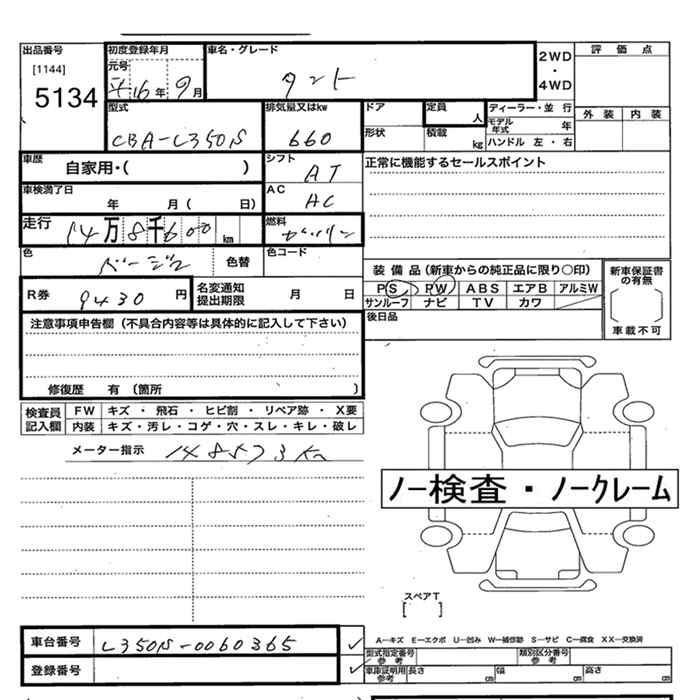 出品番号 初度登録年月 車名・グレード 2WD・4WD 評価点
[1144] 元号
5134 平16年9月 タント
型式 排気量又はkw ドア 定員 人 ディーラー・並行 外装 内装
CBA-L350S 660 形状 積載 kg モデル年式 年
ハンドル 左・右
車歴 自家用・( ) シフト AT 正常に機能するセールスポイント
車検満了日 年 月( 日) AC AC
走行 14万8千600km 燃料 ガソリン
色 ベージュ 色替 色コード
装備品(新車からの純正品に限り○印) 新車保証書の有無
R券 9430円 名変通知提出期限 月 日 PS PW ABS エアB アルミW
サンルーフ ナビ TV カワ
車載不可
注意事項申告欄(不具合内容等は具体的に記入して下さい) 後日品
修復歴 有 (箇所 )
検査員記入欄 FW キズ・飛石・ヒビ割・リペア跡・X要
内装 キズ・汚レ・コゲ・穴・スレ・キレ・破レ
メーター指示 148573km
ノー検査・ノークレーム
スペアT
[ ]
車台番号 L350S-0060365 A－キズ E－エクボ U－凹み W－補修跡 S－サビ C－腐食 XX－交換済
型式指定番号 参考 類別区分番号 参考
登録番号 車庫証明用 参考 長さ cm 幅 cm 高さ cm